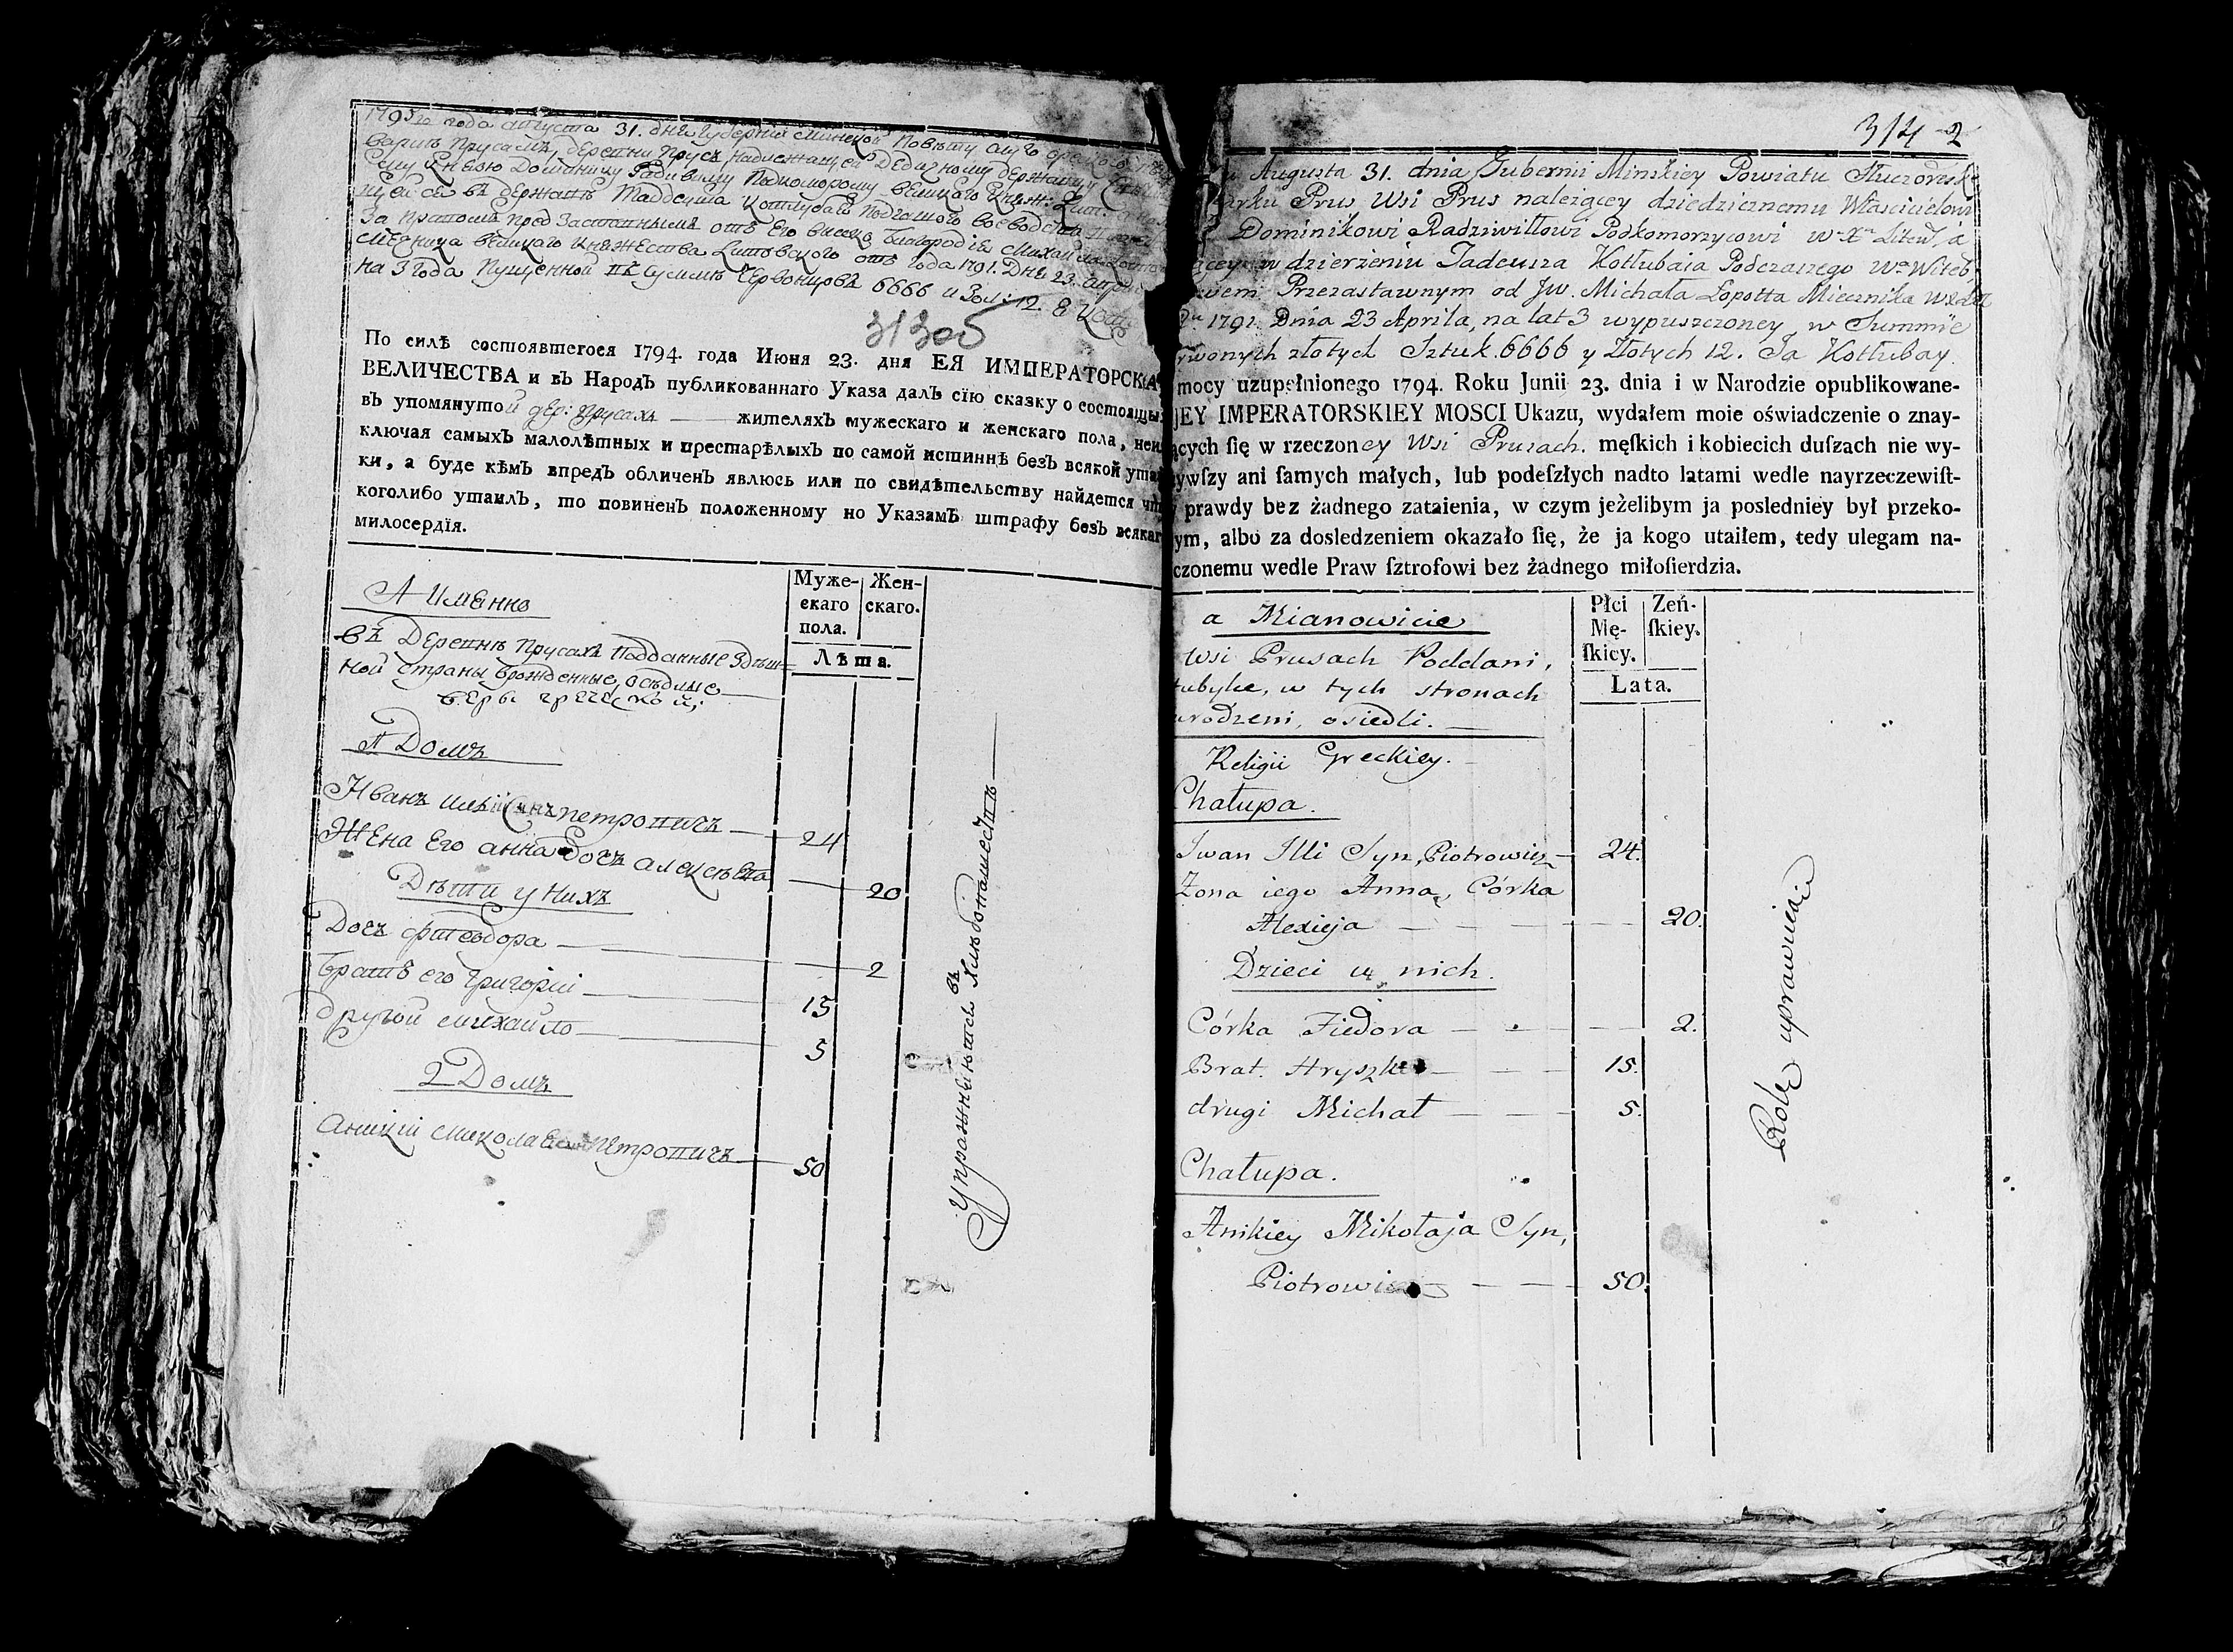 1795го года августа 31. дня Губернїи Минской Повѣту
Прусамъ, деревни Прусъ, надлежащей Дедичному держащему
Князю Доминику Радивилу Подкоморому великого Княж: Лит:
въ держанїи Таддеуша Котлубая Подчашого воеводства
За правомъ пред Заставнымъ отъ Его Михайла
Мечника великаго Княжества Литовского отъ года 1791. Дня 23. апрѣля
на 3 года Пущенной въ суммѣ Червонцовъ 6666 и Зол: 12. Я
По силѣ состоявшегося 1794. года Июня 23. дня ЕЯ ИМПЕРАТОРСКА
ВЕЛИЧЕСТВА и въ Народъ публикованнаго Указа далъ сїю сказку о состоящых
въ упомянутой дер: Прусахъ жителяхъ мужескаго и женскаго пола, неис
ключая самыхъ малолѣтных и престарѣлыхъ по самой истиннѣ безъ всякой утай
ки, а буде кѣмъ впредъ обличенъ явлюсь или по свидѣтельству найдется что
коголибо утаилъ, то повиненъ положенному по Указамъ штрафу безъ всякаго
милосердїя.
А Имѣнно
Муже-
скаго
пола.
Жен-
скаго.
Лѣта.
въ Деревнѣ Прусахъ Подданные здѣш-
ной страны врожденные, осѣдлые
вѣры греческой;
1 Домъ
Иванъ Илїи Сынъ Петровичъ 24
Жена Его анна Дочъ алексѣева 20
Дѣти у Нихъ
Дочъ Фтеодора 2
братъ его Григорїй 15
другой михайло 5
2 Домъ
Аникїй Миколаевъ Петровичъ 50
Упражняется въ Хлѣбопашествѣ
314 2
Augusta 31. dnia Gubernii Minskiey Powiatu
Prus Wsi Prus należącey dziedzicznemu Włascicielowi
Dominikowi Radziwiłłowi Podkomorzycowi W. X. Litew, a
w dzierżeniu Tadeusza Kotłubaia Podczaszego Wa Witeb
Przezastawnym od JW. Michała Łopotta Miecznika
1791. Dnia 23 Aprila, na lat 3 wypuszczoney, w Summie
złotych Sztuk. 6666 y złotych 12. Ja Kotłubay.
mocy uzupełnionego 1794. Roku Junii 23. dnia i w Narodzie opublikowane-
JEY IMPERATORSKIEY MOSCI Ukazu, wydałem moie oświadczenie o znay-
ących ſię w rzeczoney Wsi Prusach. męſkich i kobiecich duſzach nie wy-
ywſzy ani ſamych małych, lub podeſzłych nadto latami wedle nayrzeczewiſt-
prawdy bez żadnego zataienia, w czym jeżelibym ja posledniey był przeko-
ym, albo za dosledzeniem okazało ſię, że ja kogo utaiłem, tedy ulegam na-
czonemu wedle Praw ſztrofowi bez żadnego miłoſierdzia.
a Mianowicie
Płci
Mę-
ſkiey.
Zeń-
ſkiey.
Lata.
Wsi Prusach Poddani,
tubylce, w tych stronach
urodzeni, osiedli.
Religii Greckiey.
Chałupa.
Iwan Illi Syn, Piotrowicz 24.
Zona iego Anna, Córka
Alexieja 20.
Dzieci u nich.
Córka Fiedora 2.
Brat. Hryszko 15.
drugi Michał 5.
Chałupa.
Anikiey Mikołaja Syn,
Piotrowicz 50.
Rolę uprawuiąci